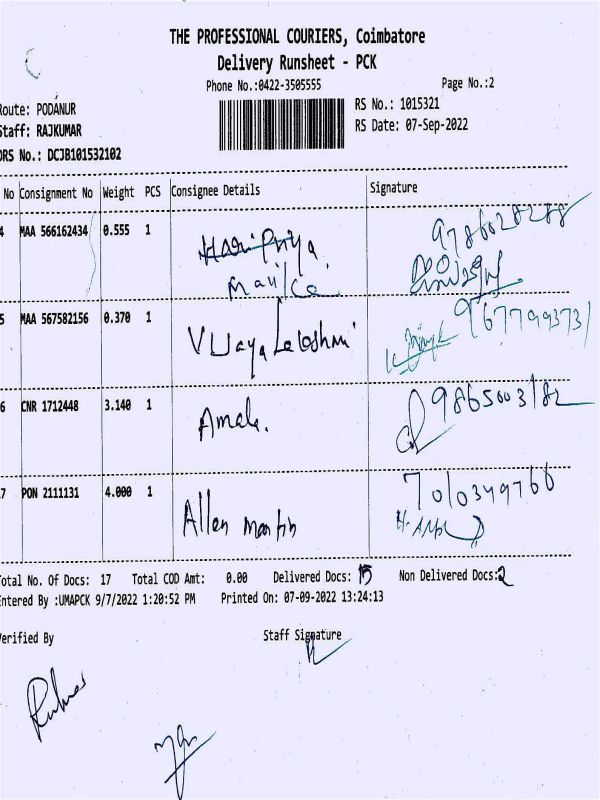 THE PROFESSIONAL COURIERS, Coimbatore
Delivery Runsheet - PCK
Phone No.:0422-3505555
Page No.:2
Route: PODANUR
RS No.: 1015321
Staff: RAJKUMAR
RS Date: 07-Sep-2022
DRS No.: DCJB101532102
No Consignment No Weight PCS Consignee Details Signature
4 MAA 566162434 0.555 1 Hari Priya 9786028288
5 MAA 567582156 0.370 1 Vijaya Lakshmi 9677993731
6 CNR 1712448 3.140 1 Amala. 9865003182
7 PON 2111131 4.000 1 Allen Martin 7010349766
Total No. Of Docs: 17 Total COD Amt: 0.00 Delivered Docs: 15 Non Delivered Docs:2
Entered By :UMAPCK 9/7/2022 1:20:52 PM Printed On: 07-09-2022 13:24:13
Verified By Staff Signature